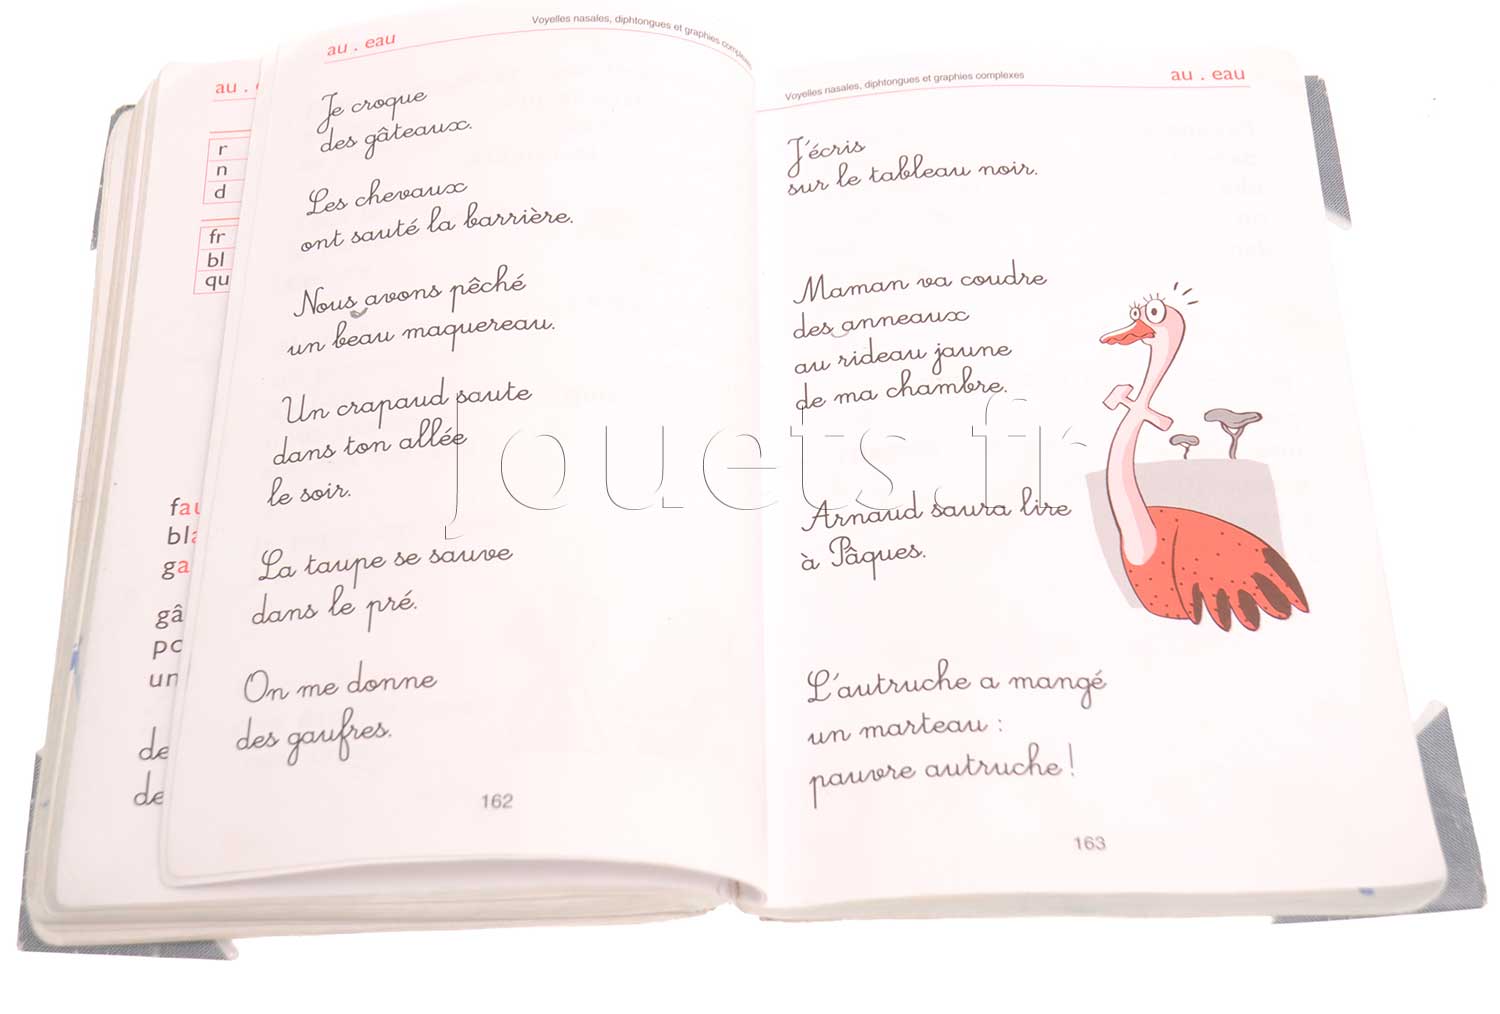 au .
r
n
d
fr
bl
qu
fau
bla
ga
gâ
po
un
de
de
au . eau
Voyelles nasales, diphtongues et graphies complexes
Je croque
des gâteaux.
Les chevaux
ont sauté la barrière.
Nous avons pêché
un beau maquereau.
Un crapaud saute
dans ton allée
le soir.
La taupe se sauve
dans le pré.
On me donne
des gaufres.
162
Voyelles nasales, diphtongues et graphies complexes
au . eau
J'écris
sur le tableau noir.
Maman va coudre
des anneaux
au rideau jaune
de ma chambre.
Arnaud saura lire
à Pâques.
L'autruche a mangé
un marteau :
pauvre autruche !
163
jouets.fr